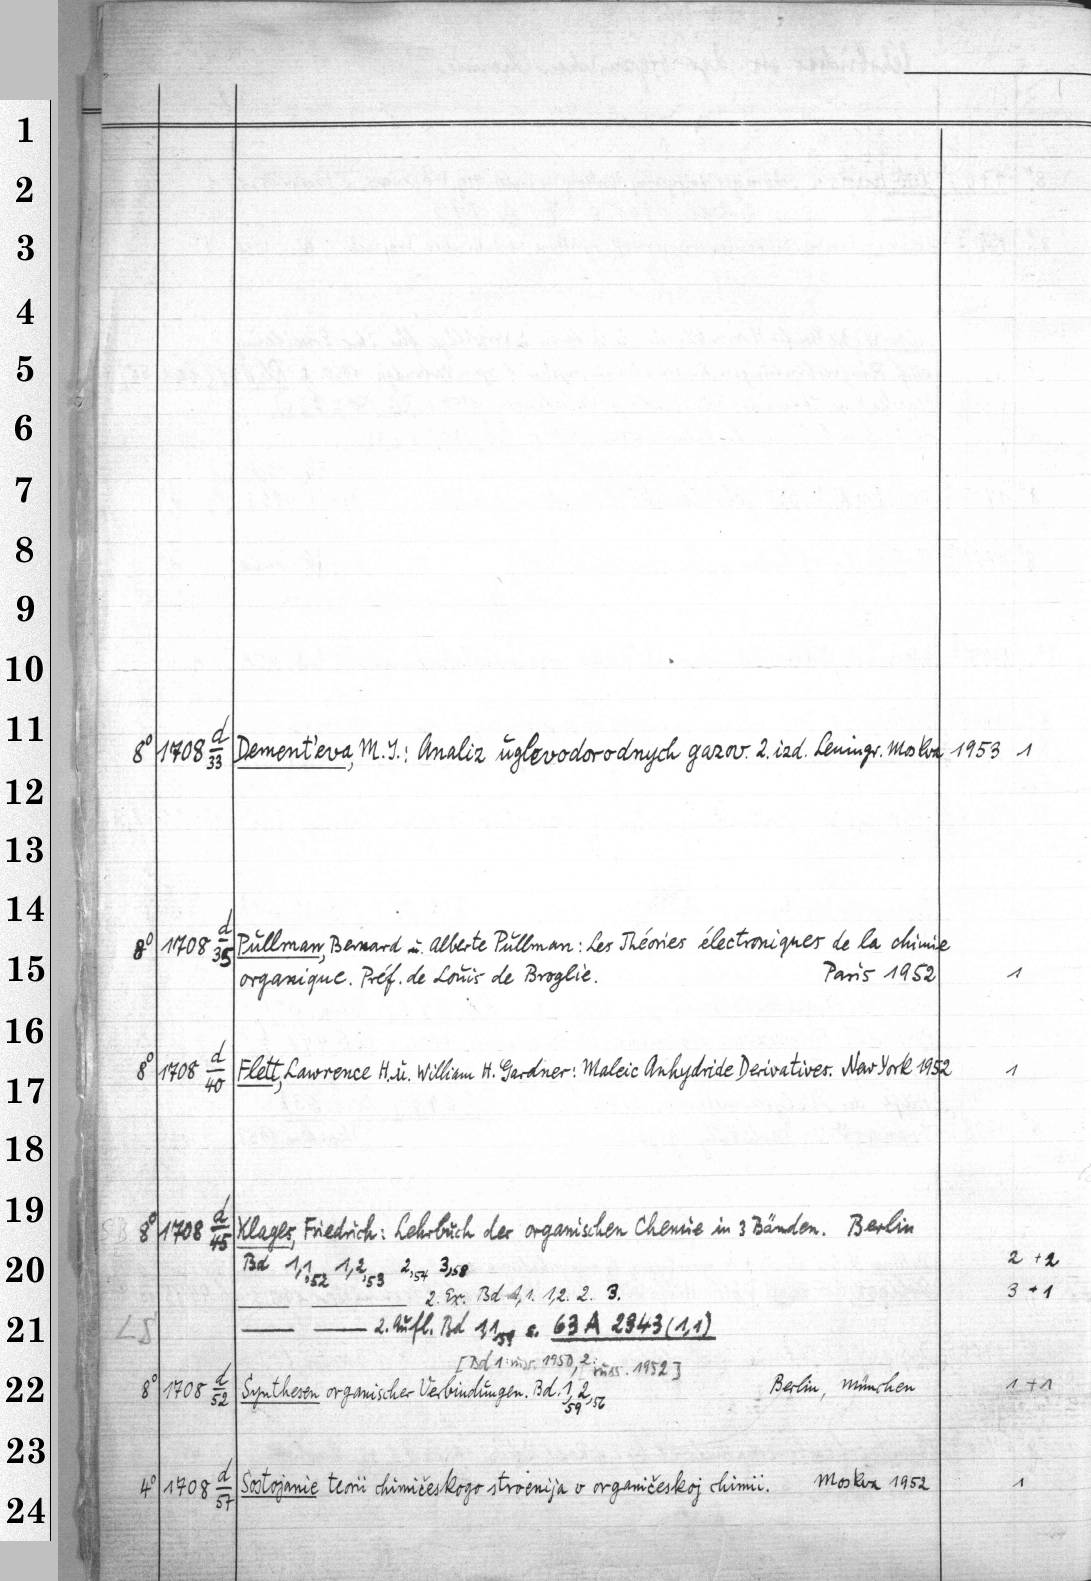 1
2
3
4
5
6
7
8
9
10
11
8° 1708 d/33 Dement'eva, M.I.: Analiz uglevodorodnych gazov. 2. izd. Leningr. Moskva 1953 1
12
13
14
8° 1708 d/35 Pullman, Bernard u. Alberte Pullman: Les Théories électroniques de la chimie
15
organique. Préf. de Louis de Broglie. Paris 1952 1
16
8° 1708 d/40 Flett, Lawrence H. u. William H. Gardner: Maleic Anhydride Derivatives. New York 1952 1
17
18
19
8° 1708 d/45 Klages, Friedrich: Lehrbuch der organischen Chemie in 3 Bänden. Berlin
20
Bd 1,1,52 1,2,53 2,54 3,58 2 + 2
2. Ex. Bd 1,1. 1,2. 2. 3. 3 + 1
21
2. Aufl. Bd 1,1,59 s. 63 A 2343 (1,1)
[Bd 1: russ. 1950, 2: russ. 1952]
22
8° 1708 d/52 Synthesen organischer Verbindungen. Bd. 1,59 2,56 Berlin, München 1 + 1
23
4° 1708 d/57 Sostojanie teorii chimičeskogo stroenija v organičeskoj chimii. Moskva 1952 1
24